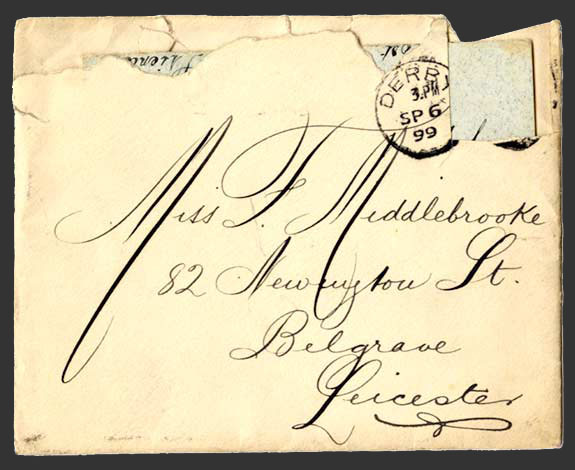 DERBY
3.PM
SP 6
99
Miss F. Middlebrooke
82 Newington St.
Belgrave
Leicester